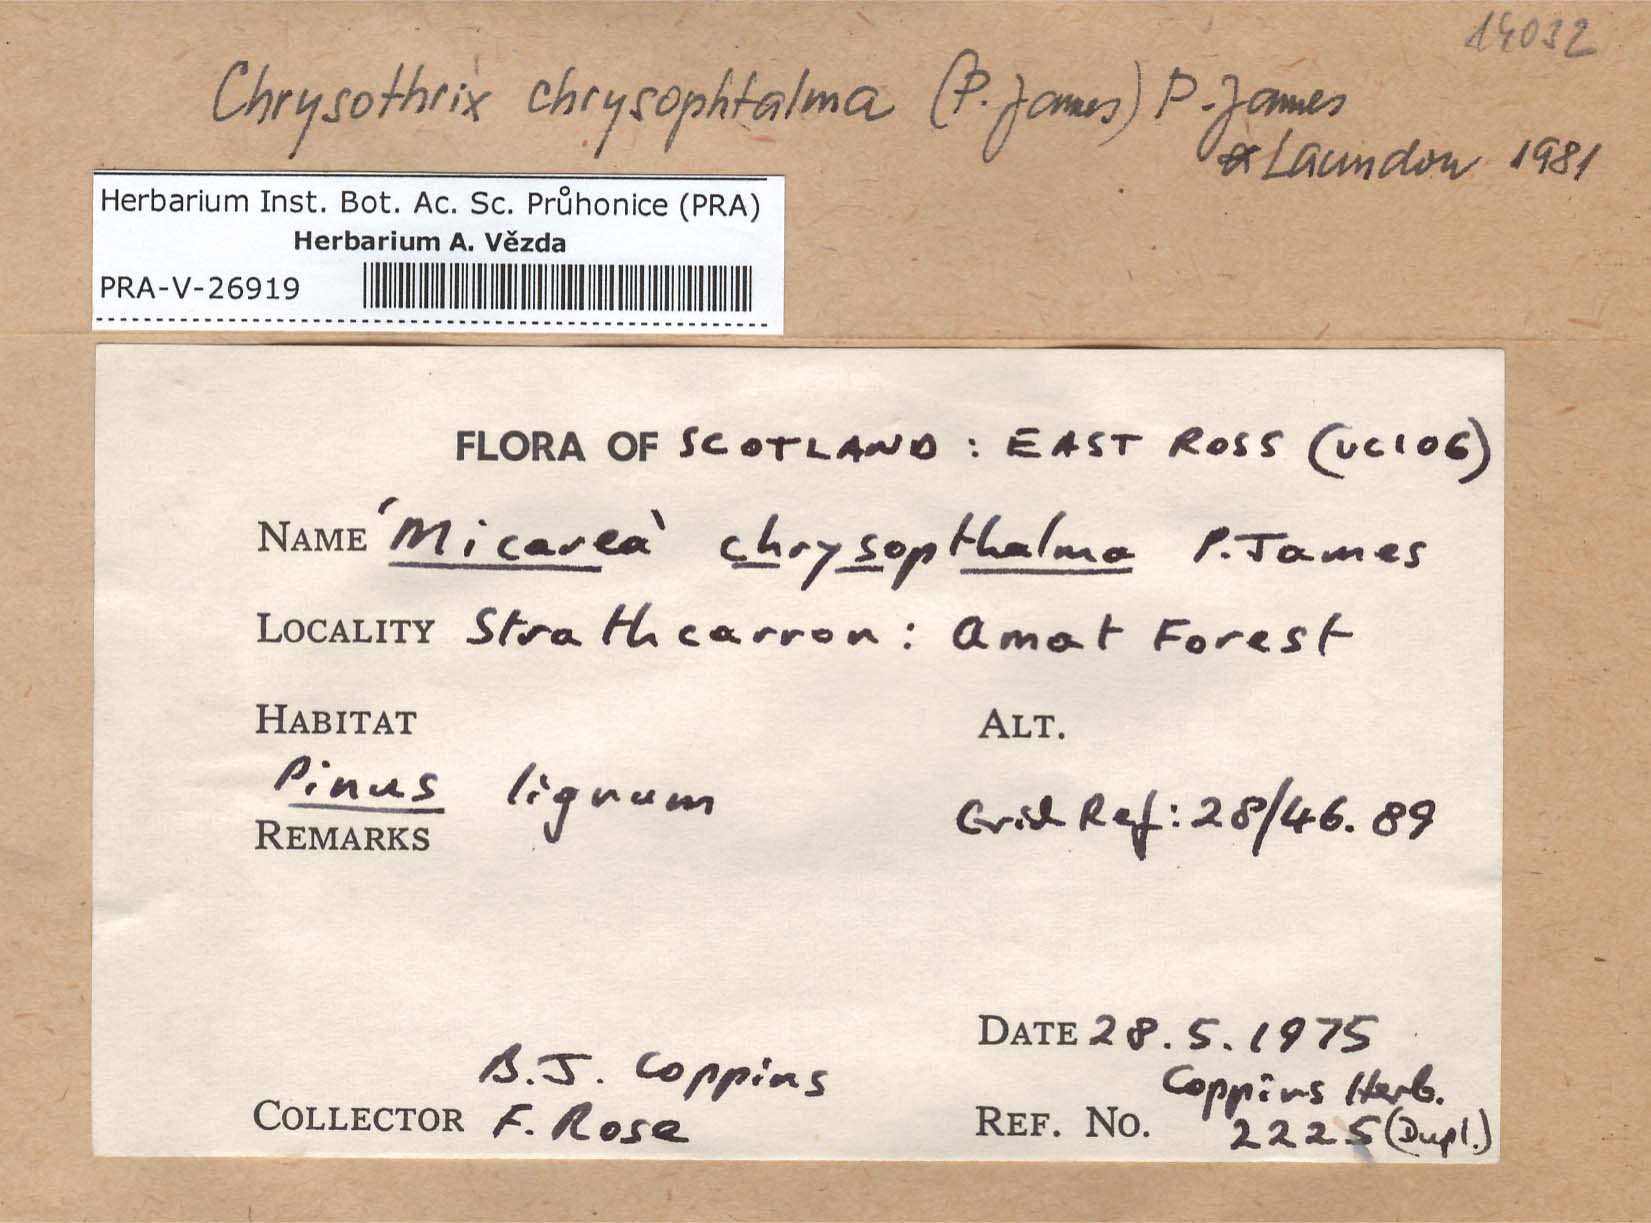 14032
Chrysothrix chrysophtalma (P. James) P. James
& Laundon 1981
Herbarium Inst. Bot. Ac. Sc. Průhonice (PRA)
Herbarium A. Vězda
PRA-V-26919
FLORA OF SCOTLAND : EAST ROSS (VC106)
NAME 'Micarea' chrysopthalma P. James
LOCALITY Strathcarron : Amat Forest
HABITAT ALT.
Pinus lignum Grid Ref: 28/46.89
REMARKS
DATE 28.5.1975
B.J. Coppins Coppins Herb.
COLLECTOR F. Rose REF. NO. 2225 (Dupl.)